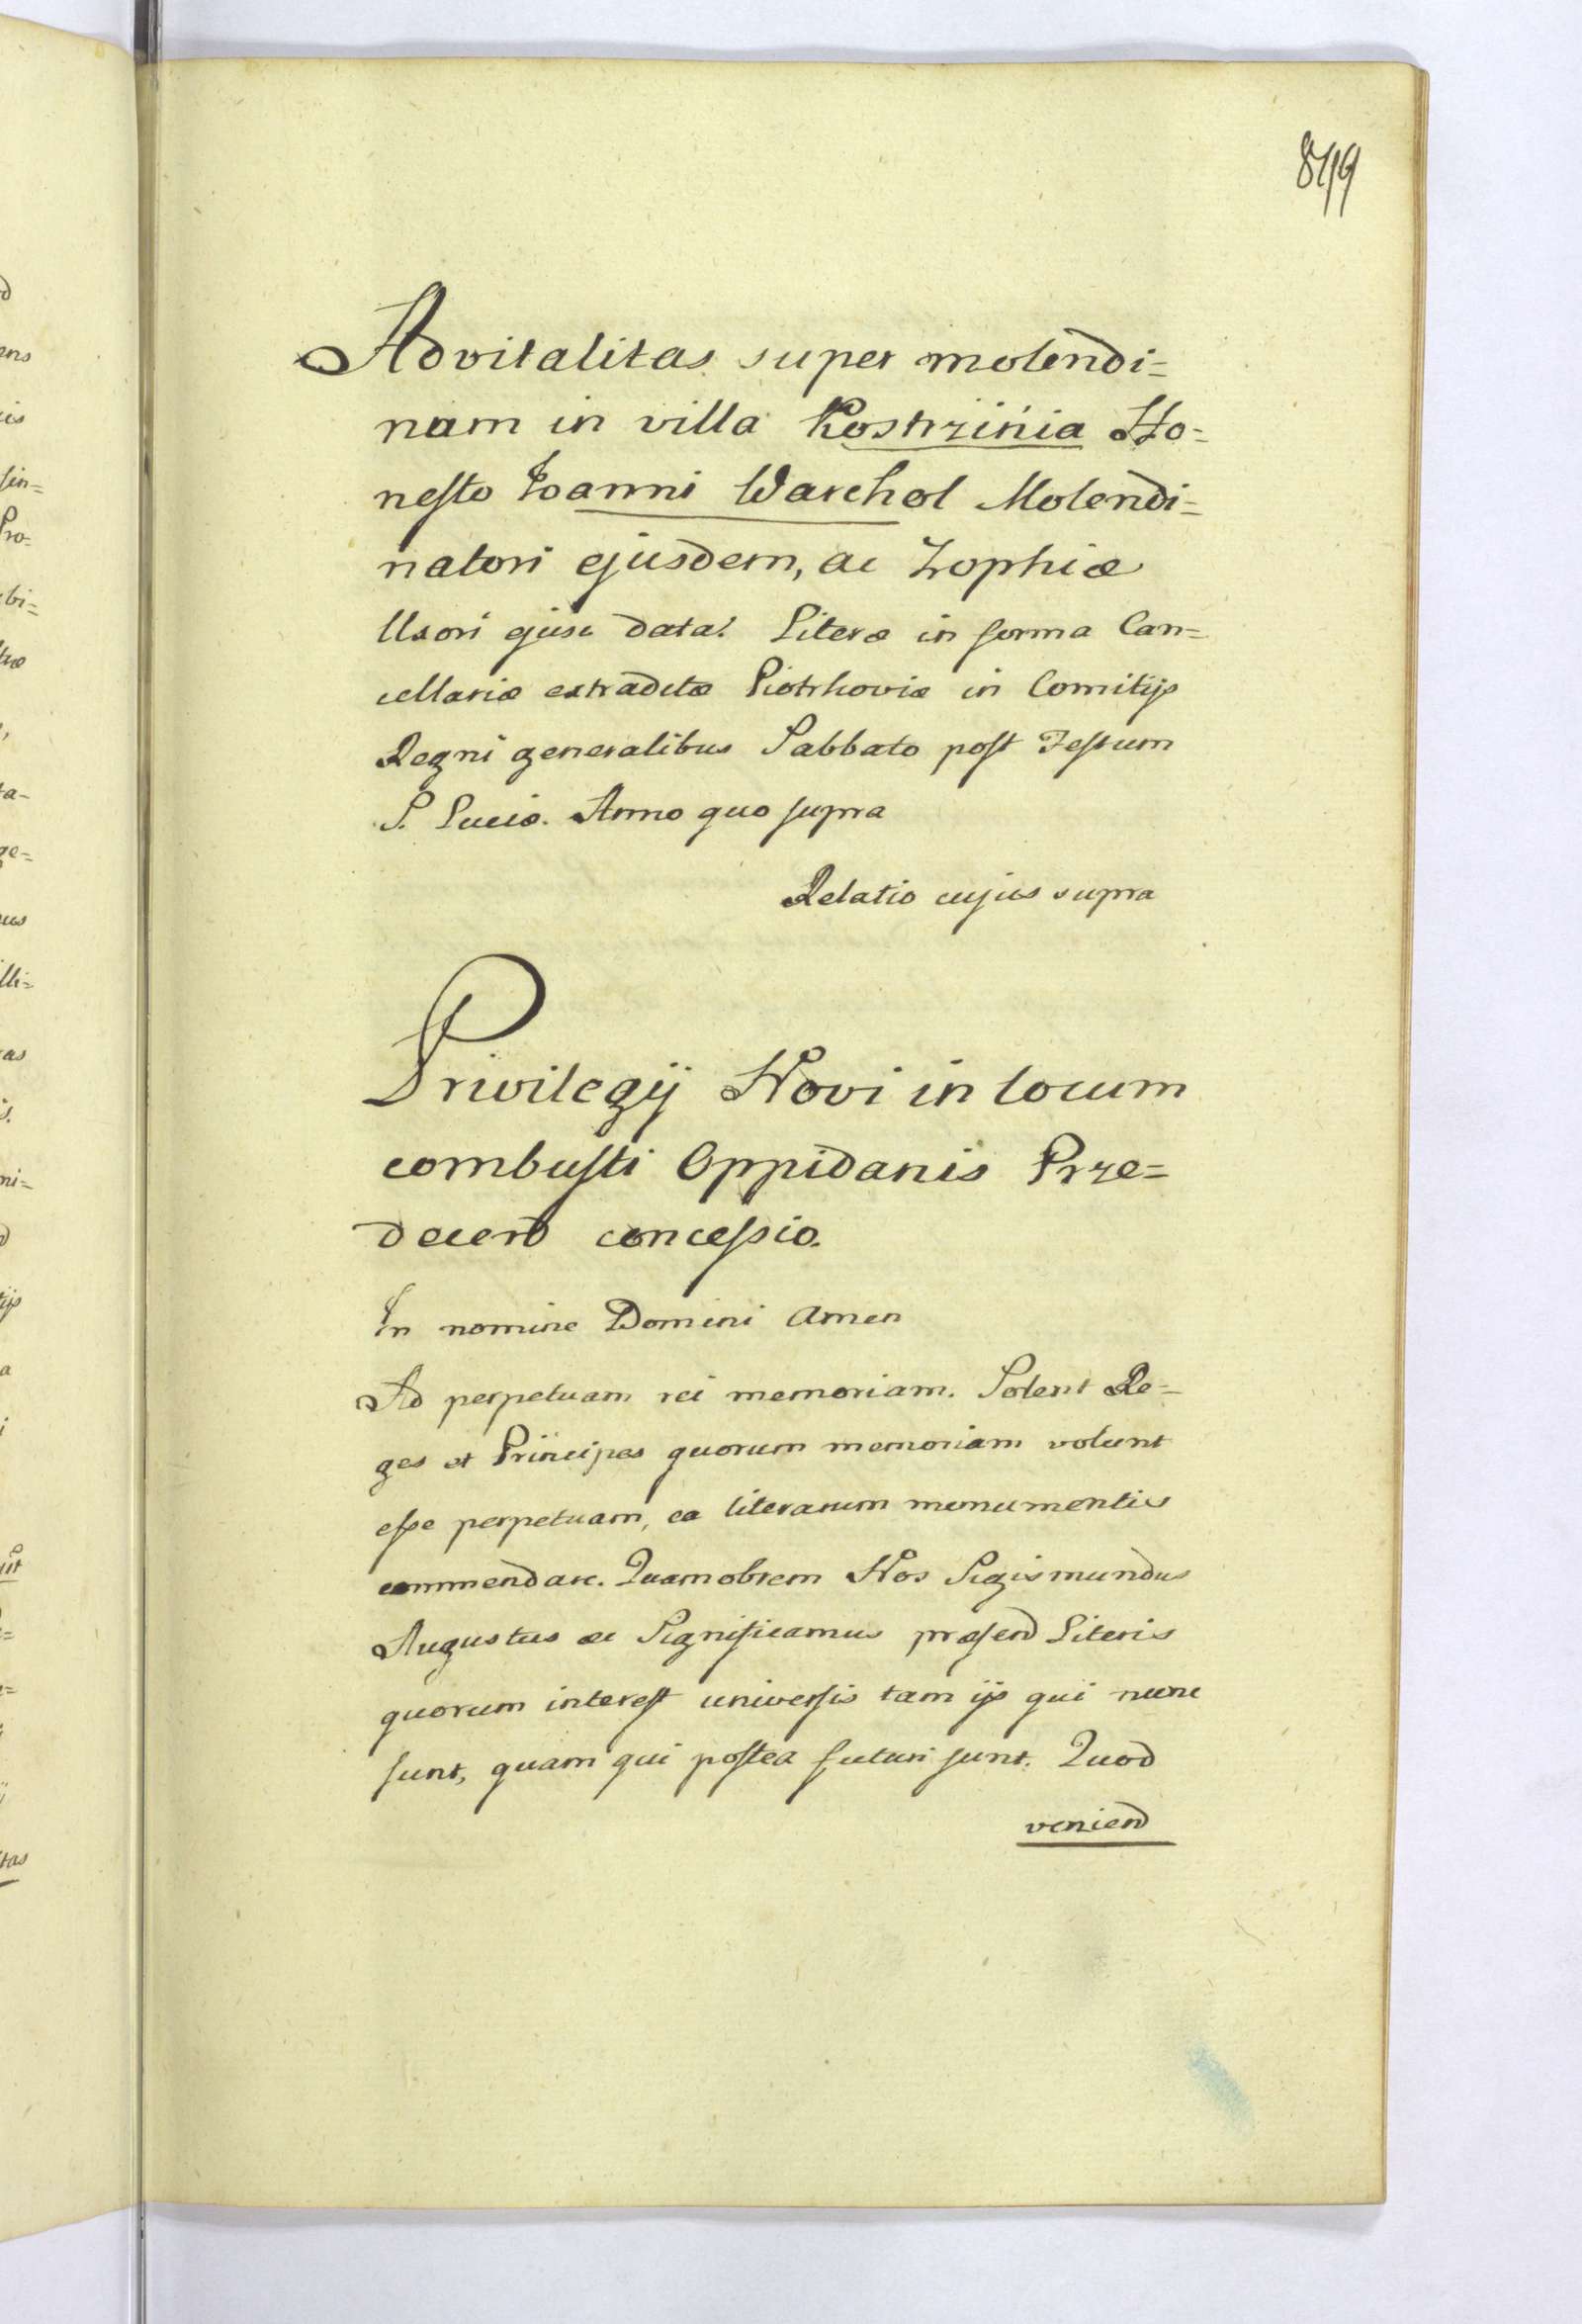 849
Advitalitas super molendi=
nam in villa Kostrzinia Ho=
nesto Ioanni Warchol Molendi=
natori ejusdem, ac Zophiæ
Uxori ejus data. Literæ in forma Can=
cellariæ extraditæ Piotrkoviæ in Comitijs
Regni generalibus Sabbato post Festum
S. Luciæ. Anno quo supra
Relatio cujus supra
Privilegij Novi in locum
combusti Oppidanis Prze=
decend concessio.
In nomine Domini Amen
Ad perpetuam rei memoriam. Solent Re=
ges et Principes quorum memoriam volunt
esse perpetuam, ea literarum monumentis
commendare. Quamobrem Nos Sigismundus
Augustus ac Significamus præsend Literis
quorum interest universis tam ijs qui nunc
sunt, quam qui postea futuri sunt. Quod
veniend